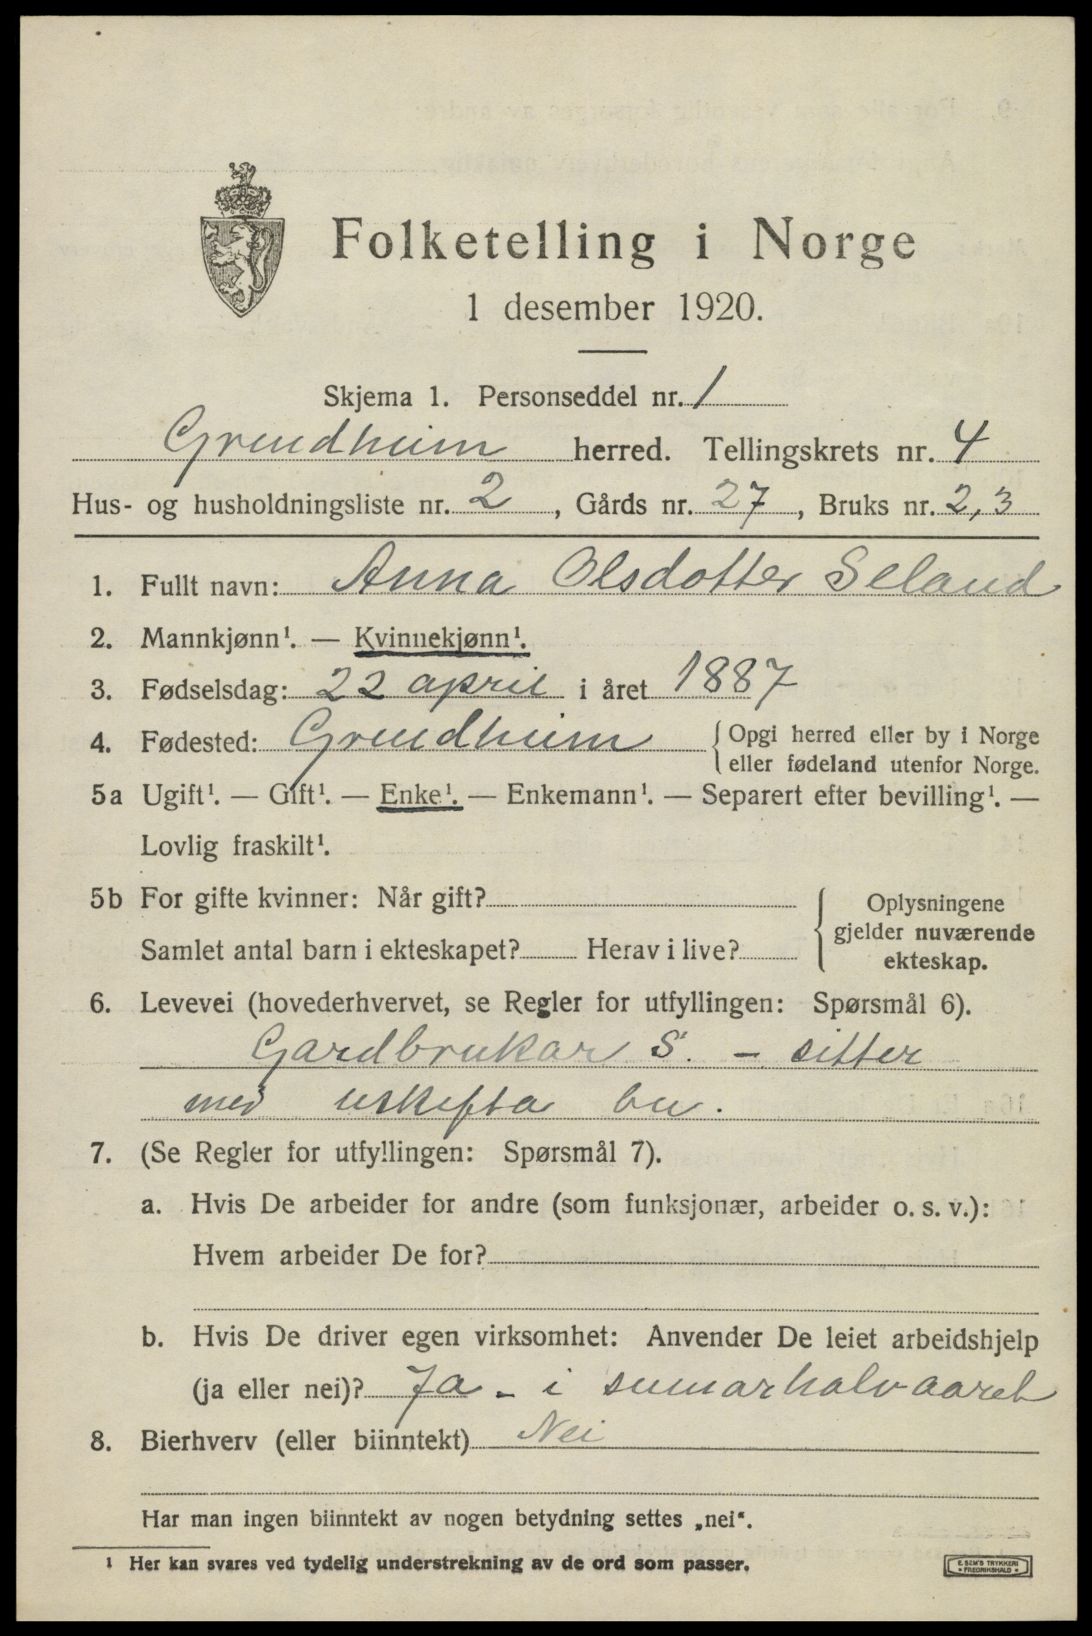 Folketelling i Norge
1 desember 1920.
Skjema 1. Personseddel nr. 1
Grendheim herred. Tellingskrets nr. 4
Hus- og husholdningsliste nr. 2, Gårds nr. 27, Bruks nr. 2,3
1. Fullt navn: Anna Olsdotter Seland
2. Mannkjønn¹. — Kvinnekjønn¹.
3. Fødselsdag: 22 april i året 1887
4. Fødested: Grendheim { Opgi herred eller by i Norge
eller fødeland utenfor Norge.
5a Ugift¹. — Gift¹. — Enke¹. — Enkemann¹. — Separert efter bevilling¹. —
Lovlig fraskilt¹.
5b For gifte kvinner: Når gift?
Samlet antal barn i ekteskapet? Herav i live?
{ Oplysningene
gjelder nuværende
ekteskap.
6. Levevei (hovederhvervet, se Regler for utfyllingen: Spørsmål 6).
Gardbrukar S. – sitter
med uskifta bu.
7. (Se Regler for utfyllingen: Spørsmål 7).
a. Hvis De arbeider for andre (som funksjonær, arbeider o. s. v.):
Hvem arbeider De for?
b. Hvis De driver egen virksomhet: Anvender De leiet arbeidshjelp
(ja eller nei)? Ja – i sumarhalvaaret
8. Bierhverv (eller biinntekt) Nei
Har man ingen biinntekt av nogen betydning settes „nei“.
¹ Her kan svares ved tydelig understrekning av de ord som passer.
E. SEM'S TRYKKERI
• FREDRIKSHALD •